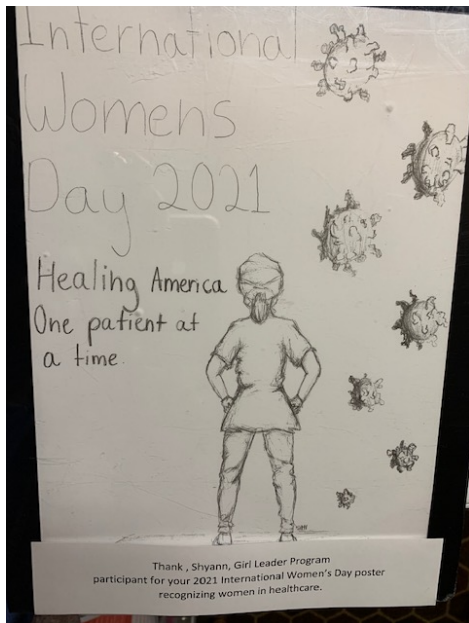 International
Womens
Day 2021
Healing America
One patient at
a time.
Thank , Shyann, Girl Leader Program
participant for your 2021 International Women's Day poster
recognizing women in healthcare.